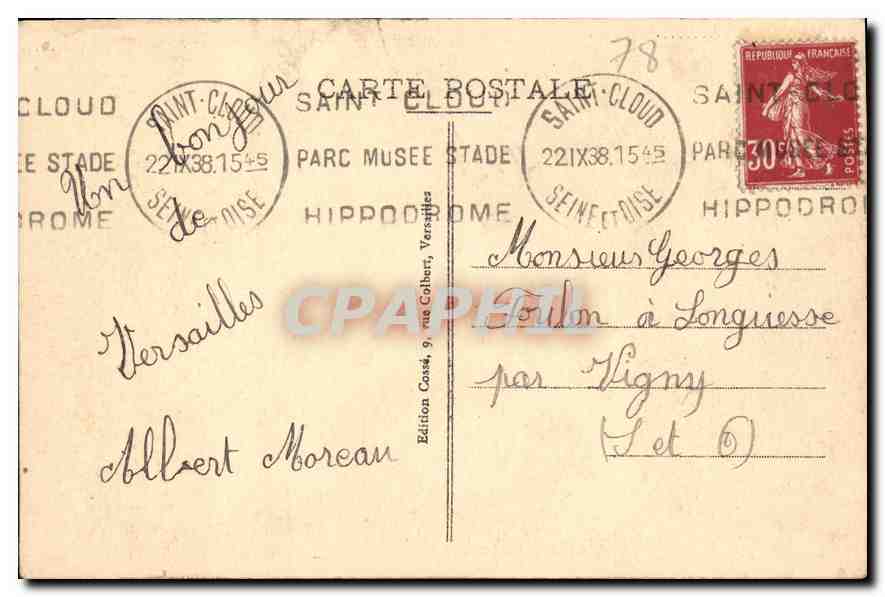 78
CARTE POSTALE
REPUBLIQUE FRANÇAISE
30c
POSTES
SAINT-CLOUD
22 IX 38. 15 45
SEINE ET OISE
SAINT CLOUD
PARC MUSEE STADE
HIPPODROME
SAINT-CLOUD
22 IX 38. 15 45
SEINE ET OISE
CLOUD
EE STADE
DROME
SAINT CLO
PARC MUSEE
HIPPODROM
Un bonjour
de
Versailles
Albert Moreau
Edition Cossé, 9, rue Colbert, Versailles
Monsieur Georges
Toulon à Longuesse
par Vigny
(S et O)
CPAPHIL